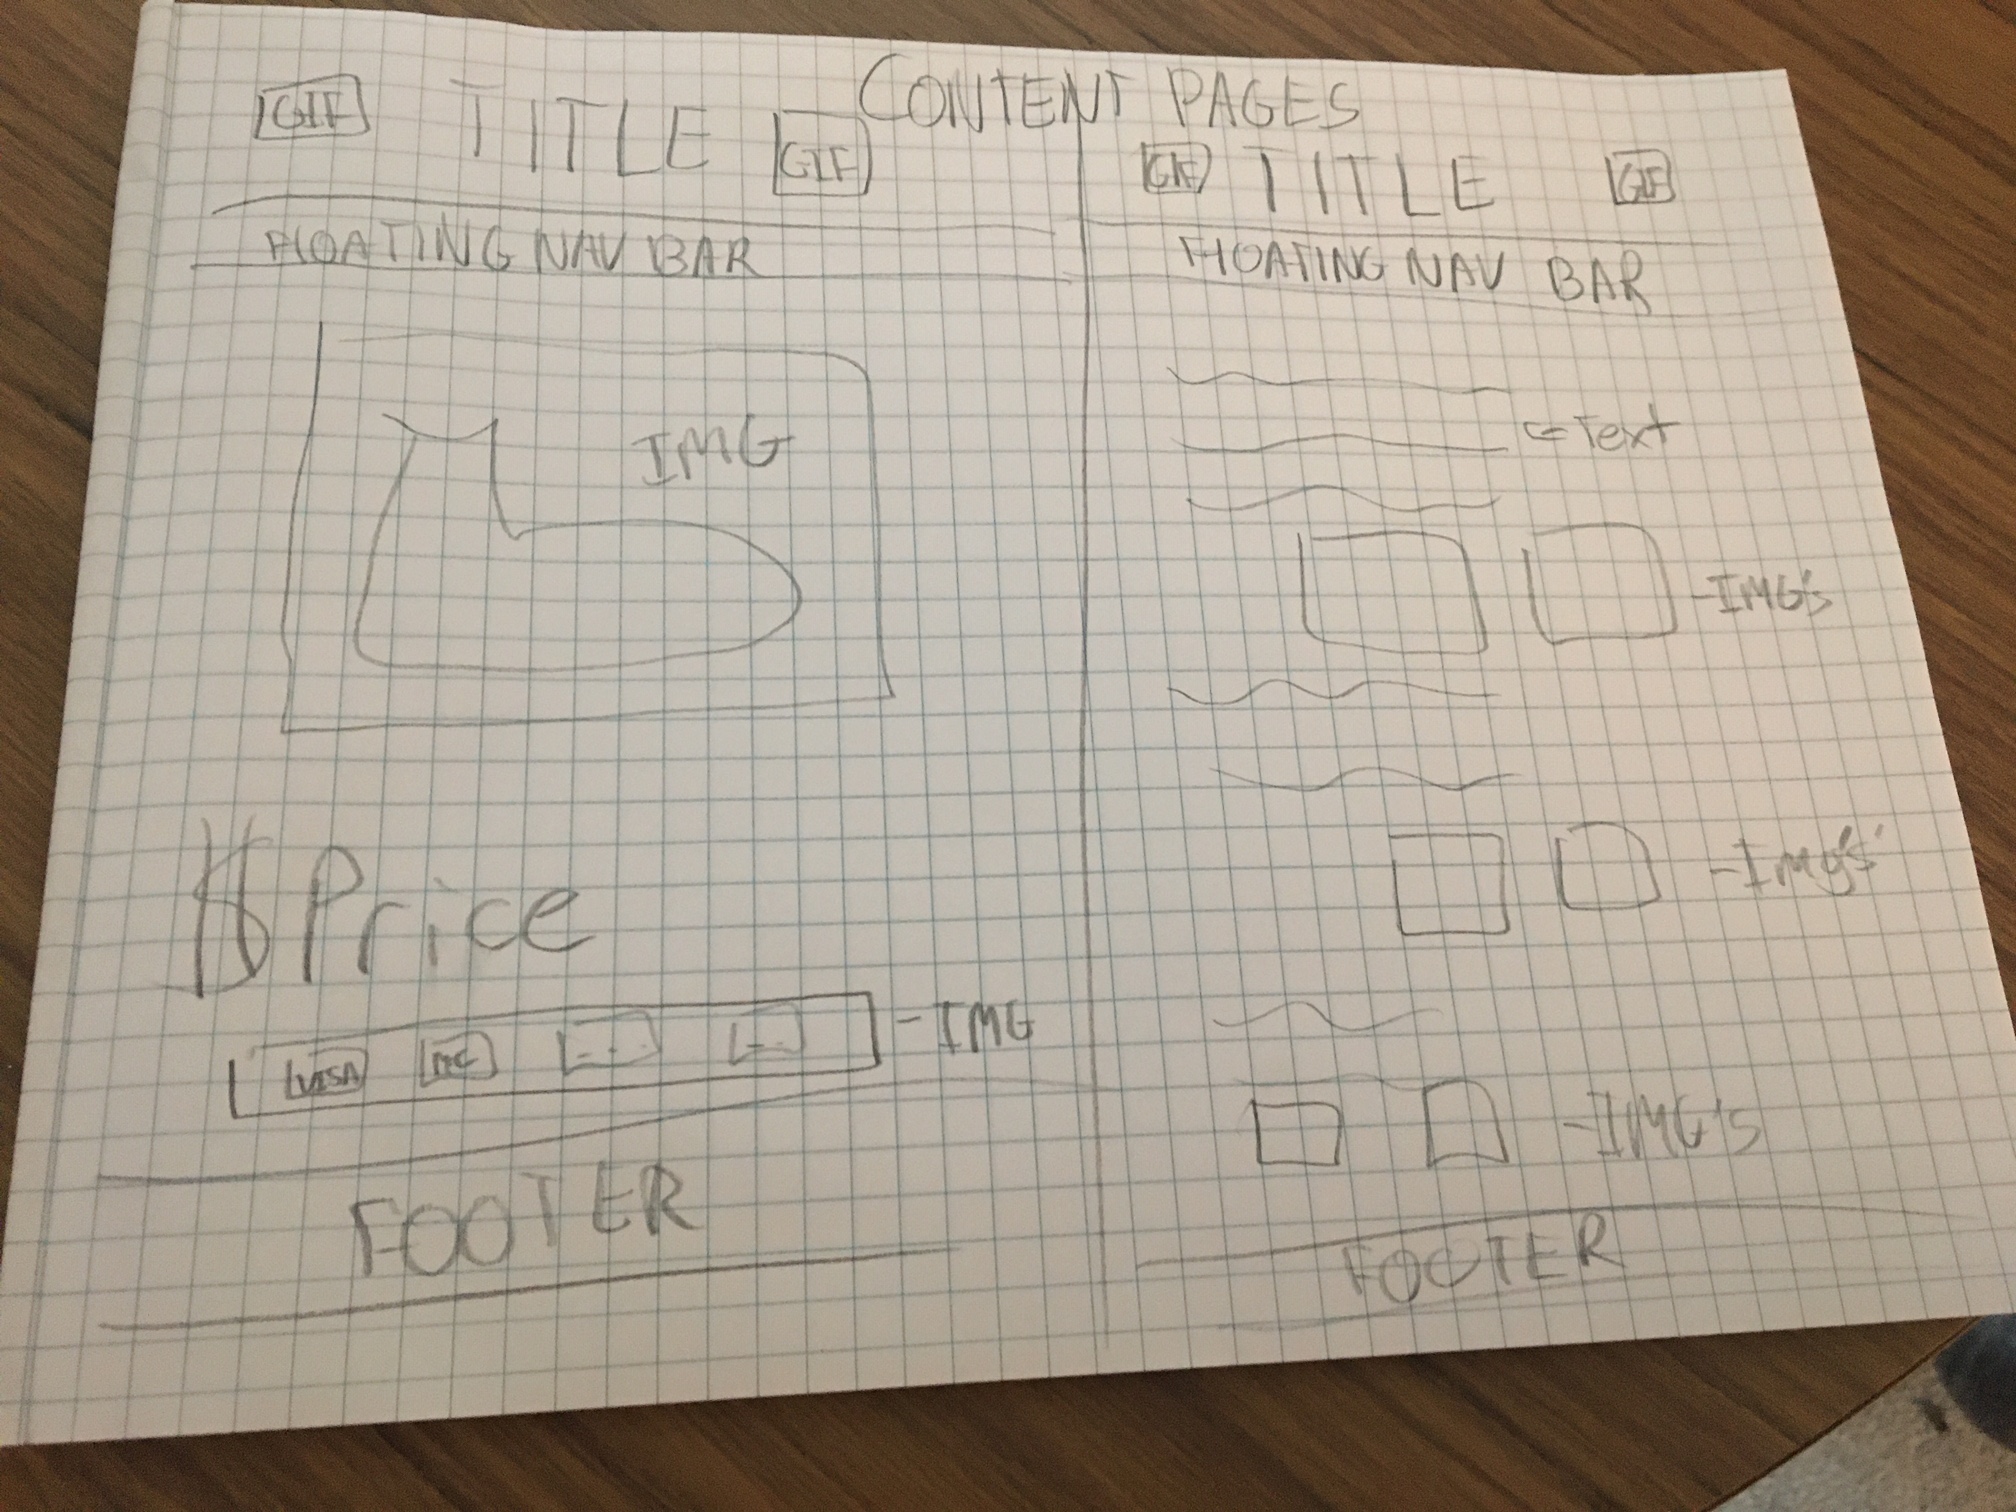 CONTENT PAGES
GIF TITLE GIF
FLOATING NAV BAR
IMG
$ Price
VISA MC -- --
- IMG
FOOTER
GIF TITLE GIF
FLOATING NAV BAR
<= Text
- IMG's
- Img's'
- IMG's
FOOTER